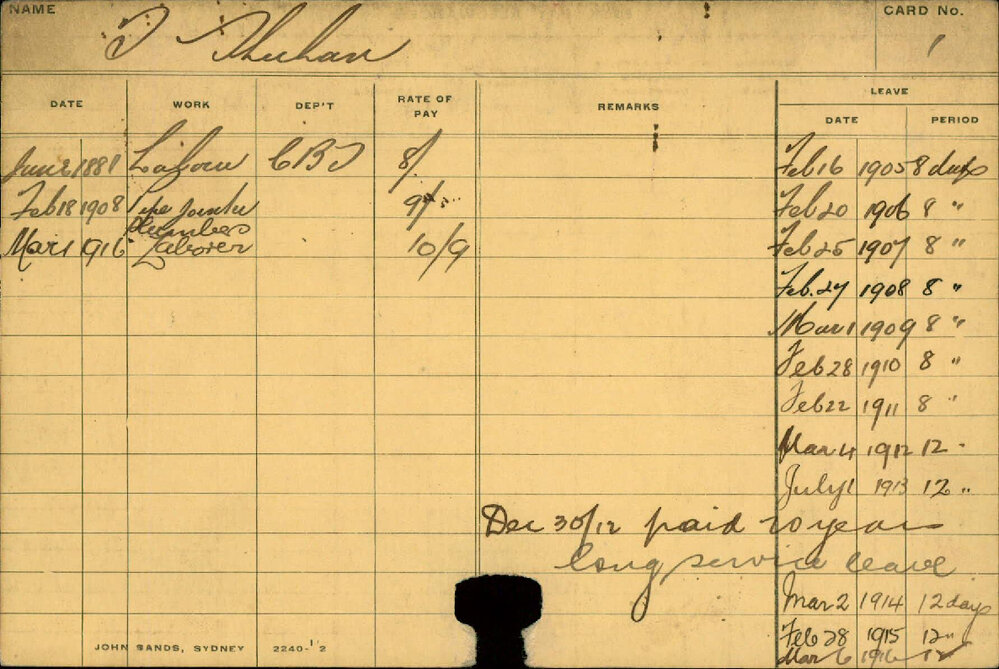 NAME CARD No.
T Sheehan 1
DATE WORK DEP'T RATE OF PAY REMARKS LEAVE
DATE PERIOD
June 2 1881 Labour CBT 8/ Feb 16 1905 8 days
Feb 18 1908 Pipe Jointer 9/ Feb 20 1906 8 "
Plumbers
Mar 1 1916 Laborer 10/9 Feb 25 1907 8 "
Feb. 27 1908 8 "
Mar 1 1909 8 "
Feb 28 1910 8 "
Feb 22 1911 8 "
Mar 4 1912 12 "
July 1 1913 12 "
Dec 30/12 paid 20 years
long service leave
Mar 2 1914 12 days
Feb 28 1915 12 "
JOHN SANDS, SYDNEY 2240-12 Mar 6 1916 12